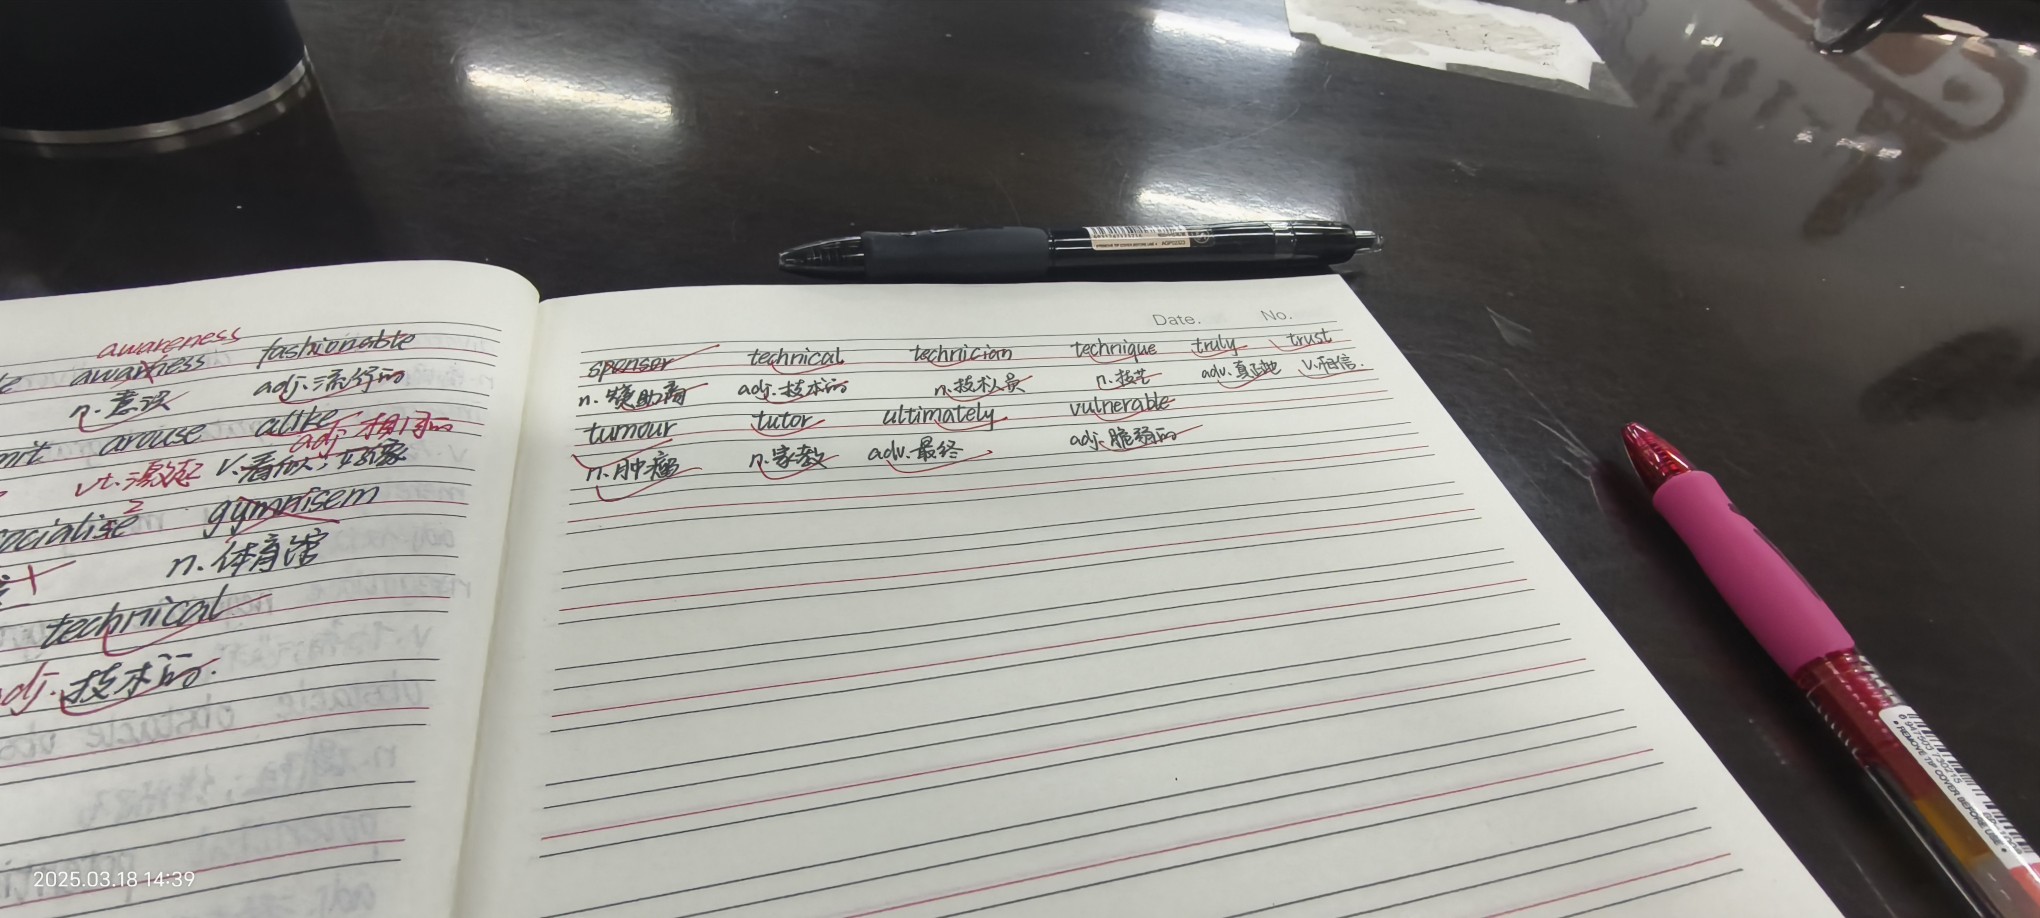 awareness
awarness fashionable
n.意识 adj.流行的
arouse alike
adj.相同的
vt.激起 v.看似;好像
2
socialise gymnisem
n.体育馆
technical
adj.技术的.
Date. No.
sponser technical technician technique truly trust
n.赞助商 adj.技术的 n.技术人员 n.技艺 adv.真正地 v.相信.
tumour tutor ultimately vulnerable
n.肿瘤 n.家教 adv.最终 adj.脆弱的
REMOVE TIP COVER BEFORE USE
2025.03.18 14:39